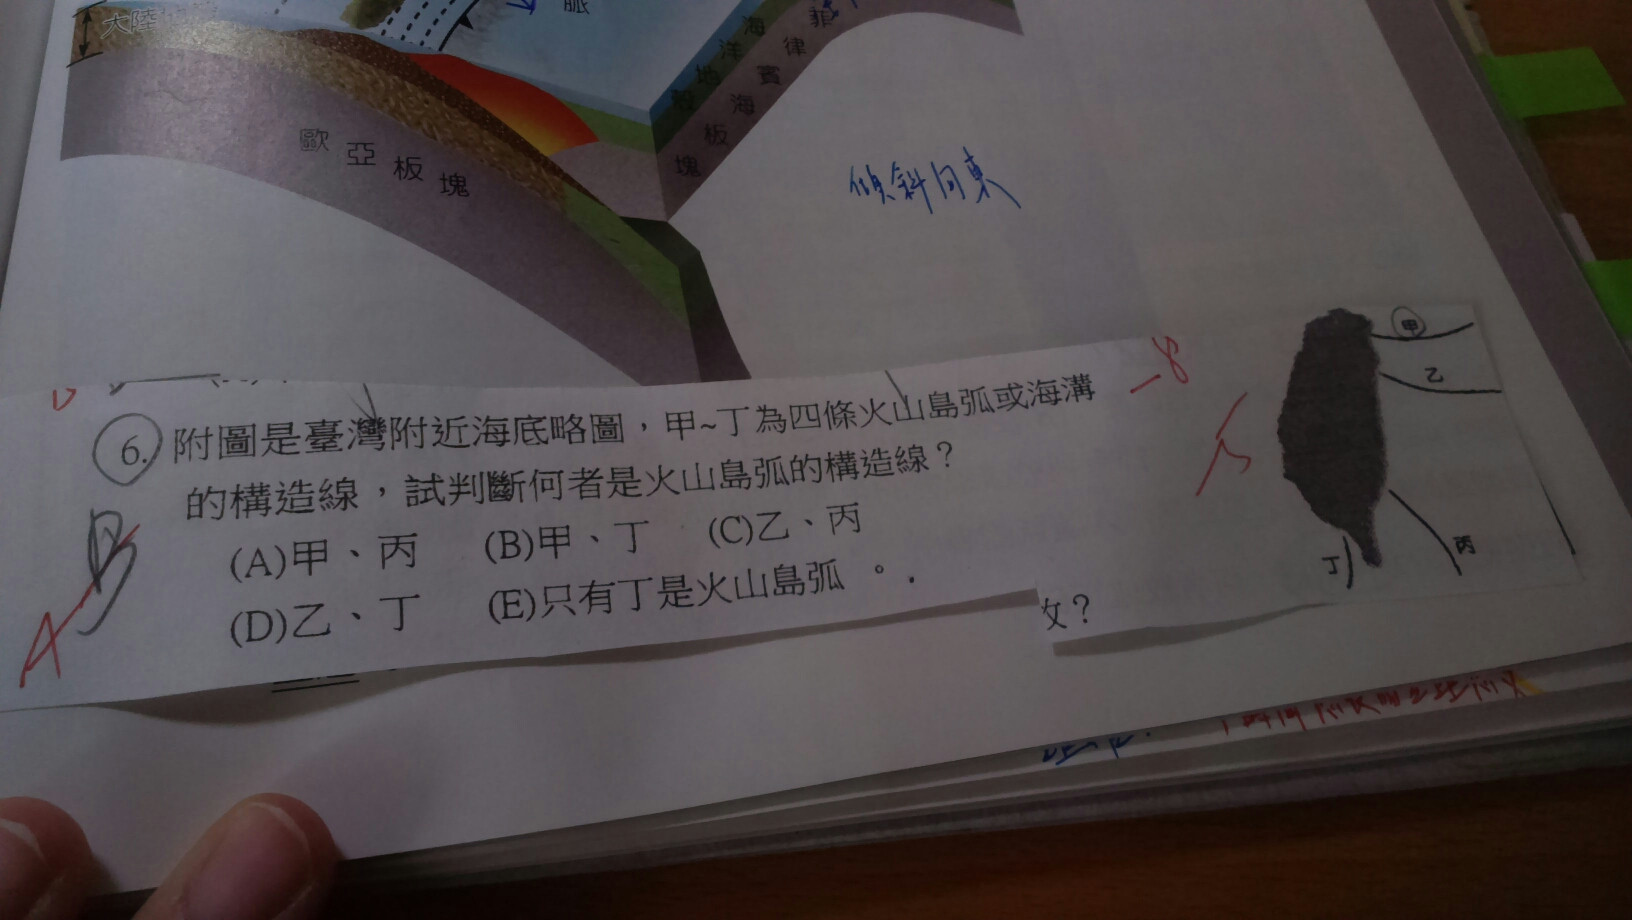 大陸
脈
海洋地殼
菲律賓海板塊
歐亞板塊
傾斜向東
-8
6.附圖是臺灣附近海底略圖，甲~丁為四條火山島弧或海溝
的構造線，試判斷何者是火山島弧的構造線？
(A)甲、丙 (B)甲、丁 (C)乙、丙
(D)乙、丁 (E)只有丁是火山島弧 。
B
A
甲
乙
丙
丁